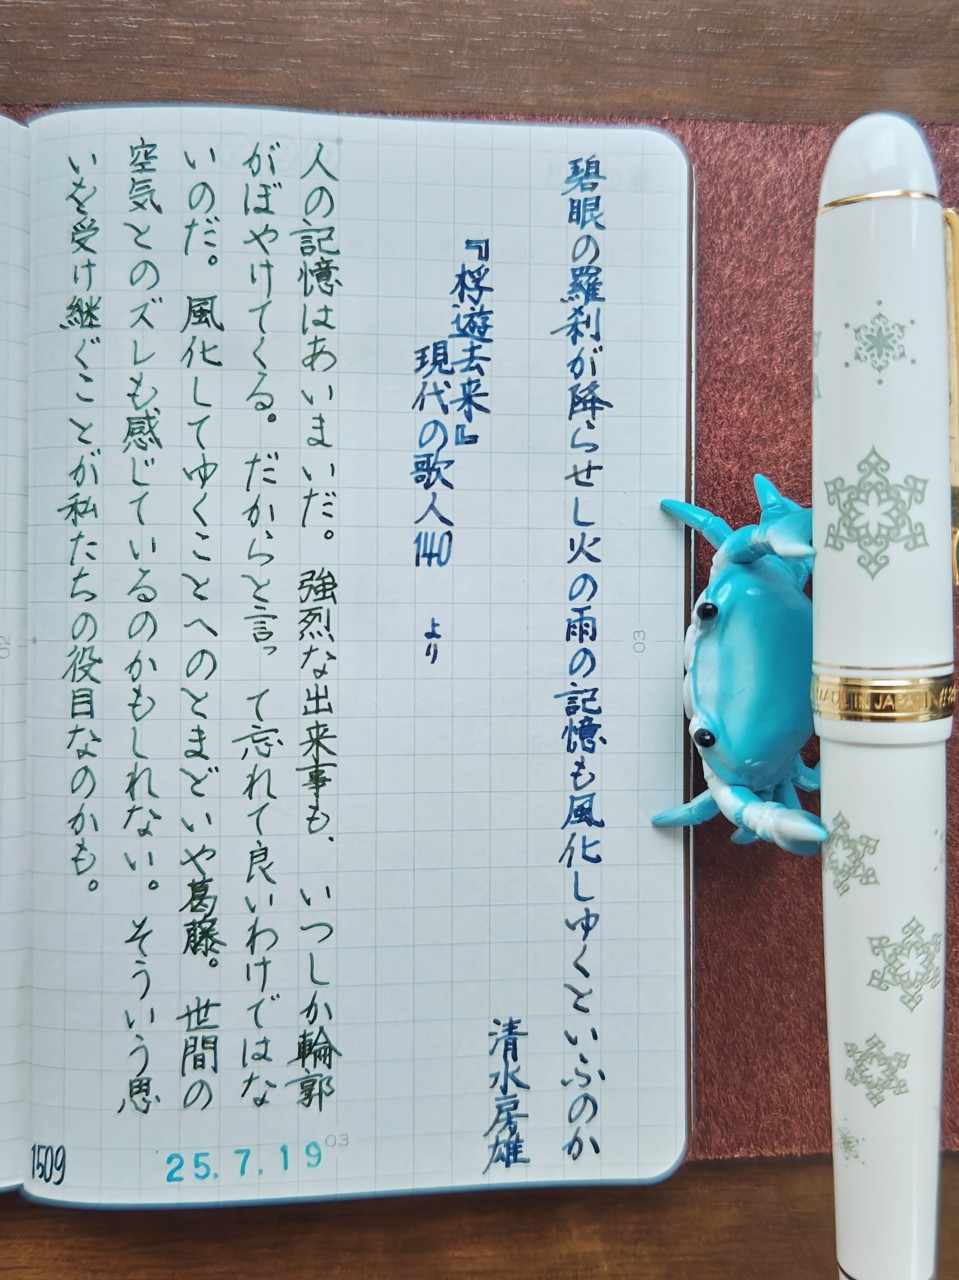 碧眼の羅刹が降らせし火の雨の記憶も風化しゆくといふのか
清水房雄
『桴遊去来』
現代の歌人140 より
人の記憶はあいまいだ。強烈な出来事も、いつしか輪郭
がぼやけてくる。だからと言って忘れて良いわけではな
いのだ。風化してゆくことへのとまどいや葛藤。世間の
空気とのズレも感じているのかもしれない。そういう思
いを受け継ぐことが私たちの役目なのかも。
03
02
03
25.7.19
1509
MADE IN JAPAN